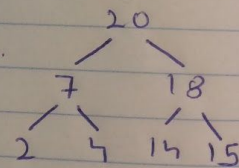 20
7 18
2 4 14 15